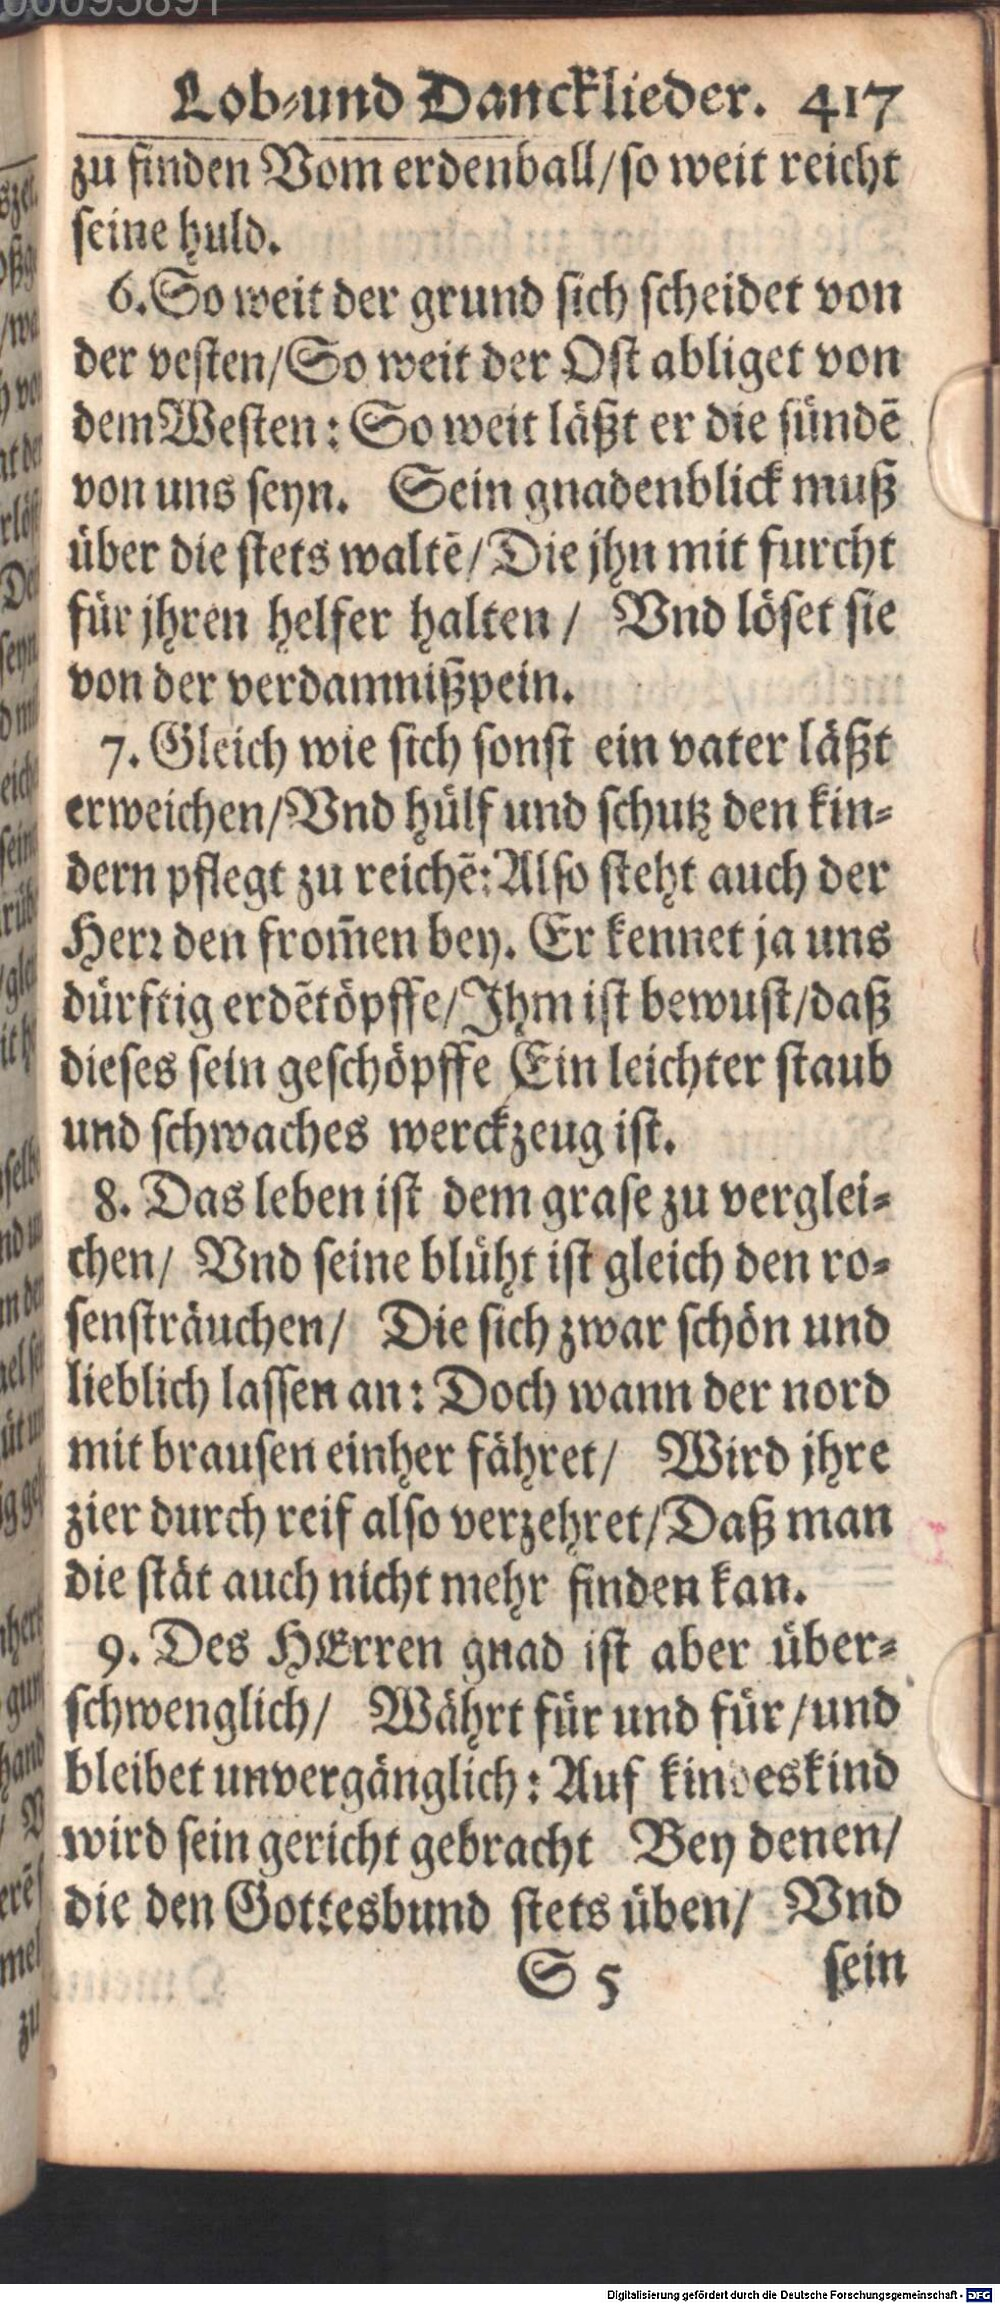 Lob-und Dancklieder. 417
zu finden Vom erdenball/so weit reicht
seine huld.
6. So weit der grund sich scheidet von
der vesten/So weit der Ost abliget von
dem Westen: So weit läßt er die sündē
von uns seyn. Sein gnadenblick muß
über die stets waltē/Die jhn mit furcht
für jhren helfer halten/ Vnd löset sie
von der verdamnißpein.
7. Gleich wie sich sonst ein vater läßt
erweichen/Vnd hülf und schutz den kin-
dern pflegt zu reichē: Also steht auch der
Herꝛ den from̃en bey. Er kennet ja uns
dürftig erdētöpffe/Ihm ist bewust/daß
dieses sein geschöpffe Ein leichter staub
und schwaches werckzeug ist.
8. Das leben ist dem grase zu verglei-
chen/ Vnd seine blüht ist gleich den ro-
sensträuchen/ Die sich zwar schön und
lieblich lassen an: Doch wann der nord
mit brausen einher fähret/ Wird jhre
zier durch reif also verzehret/Daß man
die stät auch nicht mehr finden kan.
9. Des HErren gnad ist aber über-
schwenglich/ Währt für und für/und
bleibet unvergänglich: Auf kindeskind
wird sein gericht gebracht Bey denen/
die den Gottesbund stets üben/ Vnd
S 5 sein
Digitalisierung gefördert durch die Deutsche Forschungsgemeinschaft - DFG